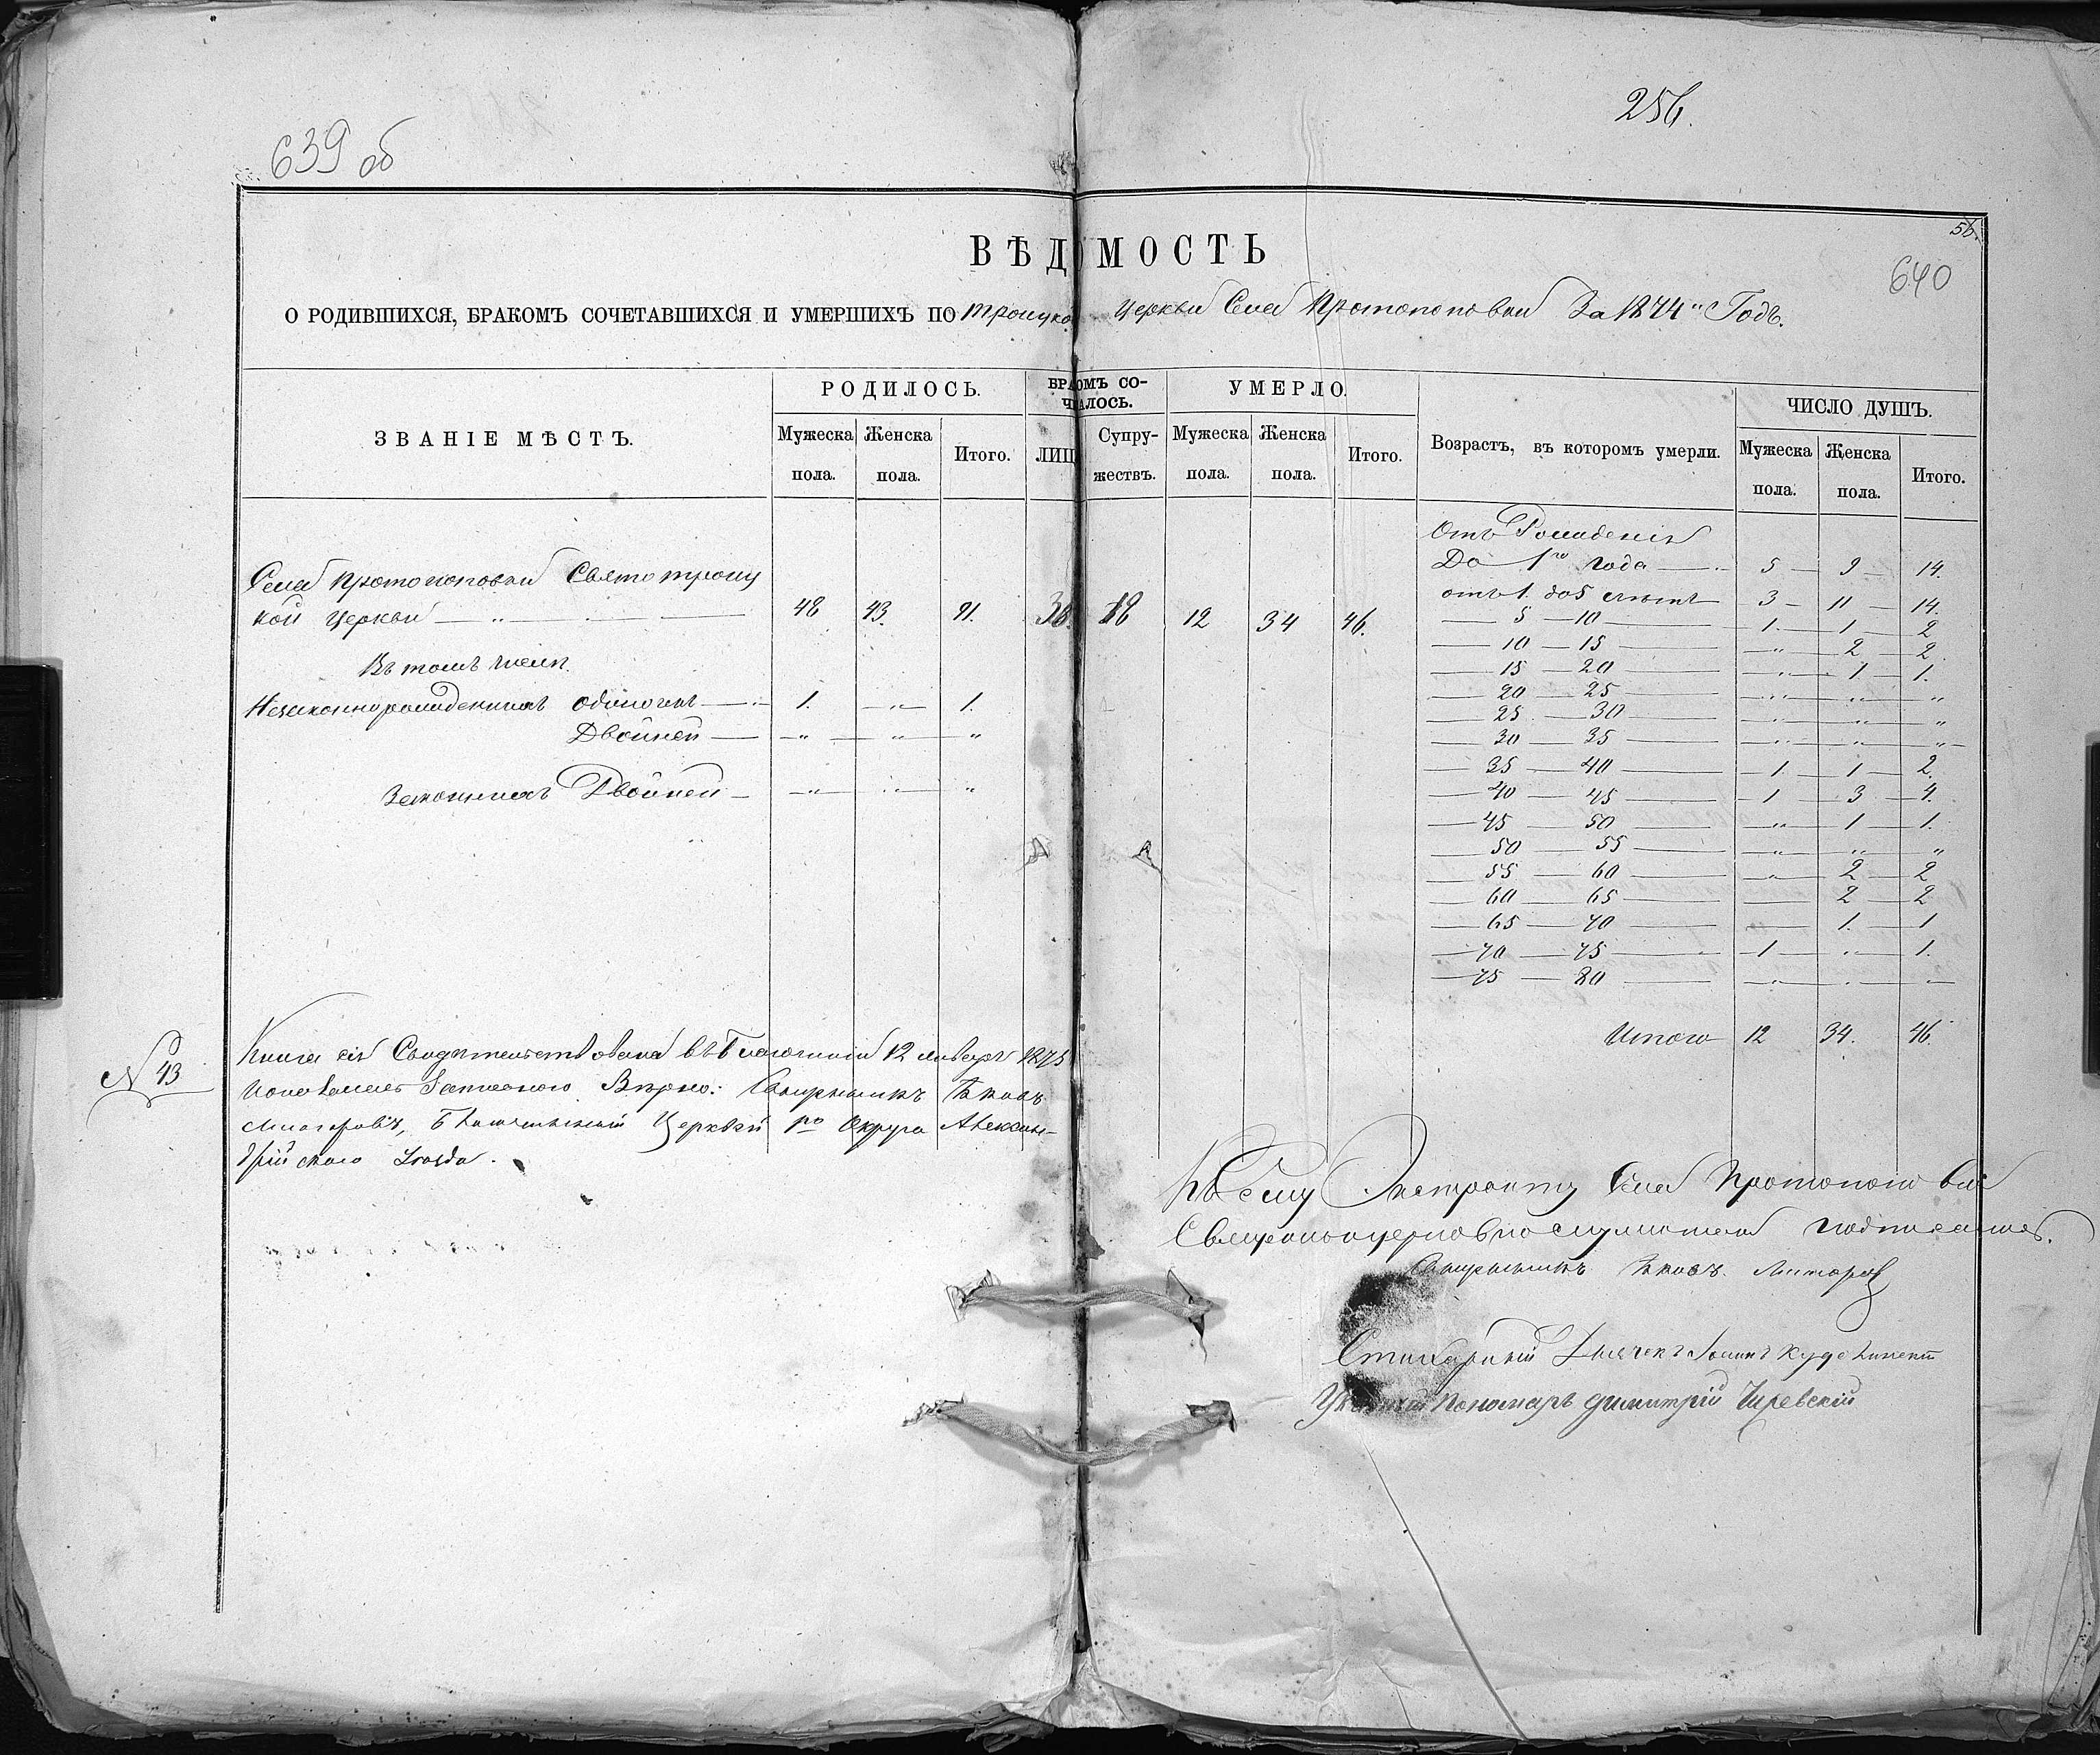 639 об
256.
56.
640
ВѢДОМОСТЬ
О РОДИВШИХСЯ, БРАКОМЪ СОЧЕТАВШИХСЯ И УМЕРШИХЪ ПО Троицкой Церкви Села Протопоповки За 1874й Годъ.
ЗВАНІЕ МѢСТЪ.
РОДИЛОСЬ.
Мужеска пола.
Женска пола.
Итого.
БРАКОМЪ СО-
ЧТАЛОСЬ.
ЛИЦЪ
Супру-
жествъ.
УМЕРЛО.
Мужеска пола.
Женска пола.
Итого.
Возрастъ, въ которомъ умерли.
ЧИСЛО ДУШЪ.
Мужеска пола.
Женска пола.
Итого.
Села Протопоповки Святотроиц
кой Церкви — „ — 48 43. 91. 36. 18 12 34 46.
Въ томъ числѣ
Незаконнорожденныхъ одиночекъ — 1. — „ — 1.
Двойней — „ — „ — „
Законныхъ Двойней — „ — „ — „
Отъ Рожденія
До 1го года — 5 — 9 — 14.
отъ 1. до 5 лѣтъ — 3 — 11 — 14.
— 5 — 10 — 1. — 1 — 2
— 10 — 15 — „ — 2 — 2.
— 15 — 20 — „ — 1 — 1.
— 20 — 25 — „ — „ — „
— 25 — 30 — „ — „ — „
— 30 — 35 — „ — „ — „
— 35 — 40 — 1. — 1 — 2.
— 40 — 45 — 1 — 3 — 4.
— 45 — 50 — „ — 1 — 1.
— 50 — 55 — „ — „ — „
— 55 — 60 — „ — 2 — 2
— 60 — 65 — 2 — 2
— 65 — 70 — „ — 1. — 1
— 70 — 75 — 1 — „ — 1.
— 75 — 80 — „ — „ — „
Итого 12 34. 46.
N 43
Книга сія Свидѣтельствована въ Благочинiи 12 Января 1875
Церквей го Округа Алексан-
дрійскаго Уѣзда.
Къ Сему Экстракту Села Протопоповки
Священноцерковнослужители подписались.
Священникъ Яковъ
Стихарный Дьячекъ Іоаннъ
Указный Пономарь Димитрій